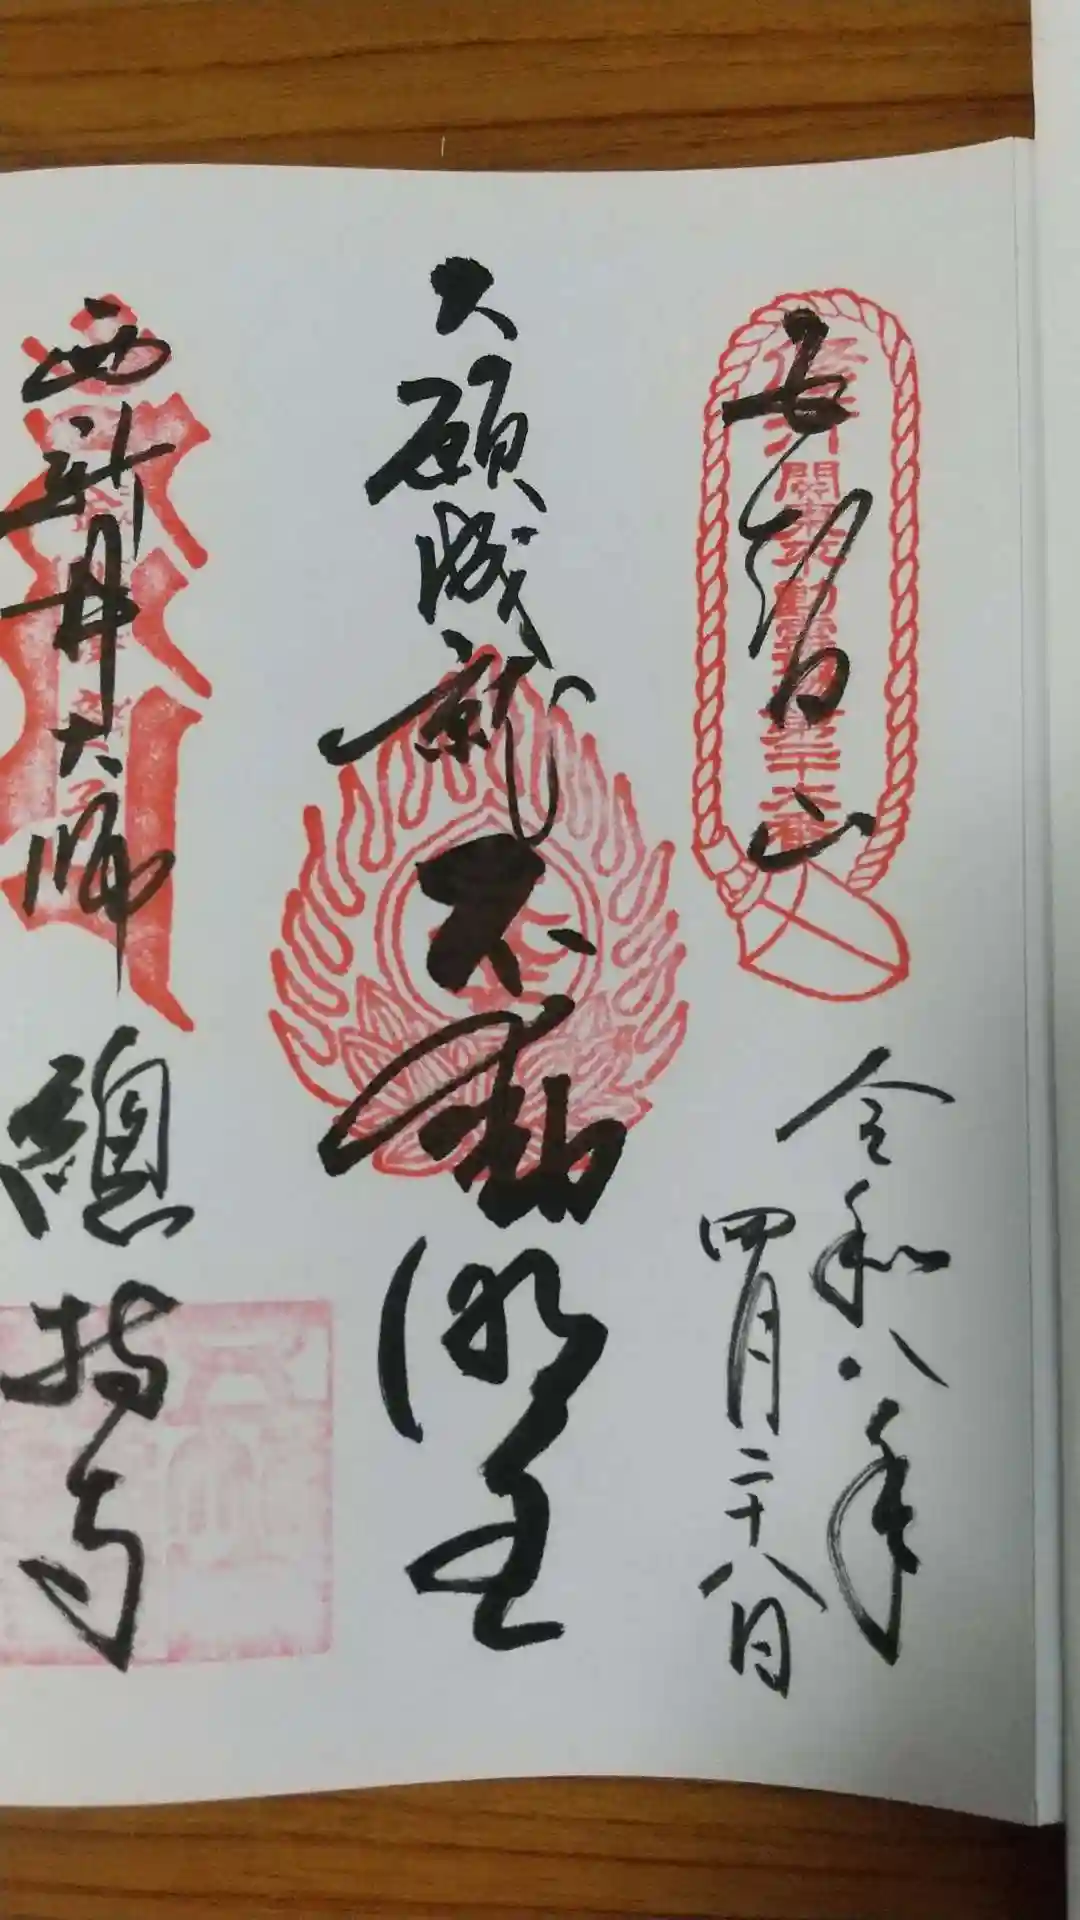 五智山
修行
關東不動霊場第二十六番
令和八年
四月二十八日
大願成就
不動明王
西新井大師
總持寺